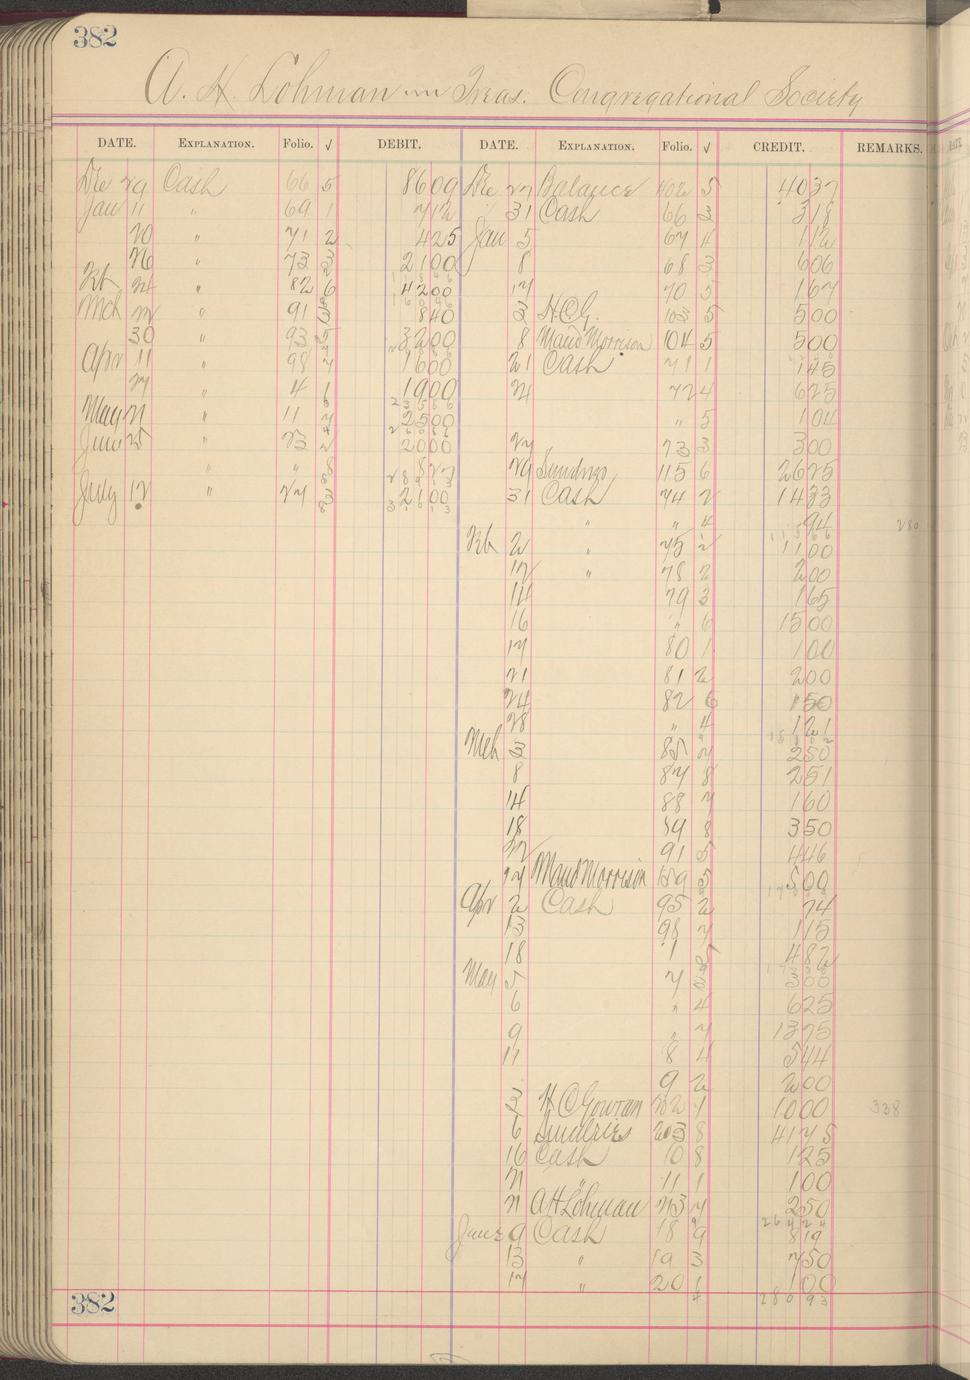 382
A. H. Lohman Treas. Congregational Society
DATE. EXPLANATION. Folio. √ DEBIT. DATE. EXPLANATION. Folio. √ CREDIT. REMARKS.
Dec 29 Cash 66 5 8609 Dec 27 Balance 402 5 4037
Jan 11 " 69 1 712 31 Cash 66 3 318
20 " 71 2 425 Jan 5 67 4 112
26 " 73 3 2100 8 68 3 606
Feb 24 " 82 6 4200 17 70 5 167
Mch " 91 840 3 H.C.G. 103 5 500
30 " 93 5 3200 8 Maud Morrison 104 5 500
Apr 11 " 98 7 1600 21 Cash 71 1 145
27 " 4 1 1900 24 72 4 625
May 21 " 11 7 2500 " 5 104
June 25 " 23 2 2000 27 73 3 300
" " 8 827 29 Sundrys 115 6 2625
July 12 " 27 3 2100 31 Cash 74 2 1433
" " 4 94 280
Feb 2 " 75 2 1100
12 " 78 2 200
14 79 3 165
16 " 6 1500
17 80 1 100
21 81 2 200
24 82 6 150
28 " 4 121
Mch 3 85 7 250
8 87 8 251
14 88 7 160
18 89 8 350
22 91 5 446
27 Maud Morrison 159 5 500
Apr 2 Cash 95 2 74
13 98 7 115
18 1 5 482
May 5 7 3 300
6 " 4 625
9 " 7 1375
11 8 4 544
9 2 200
3 H C Gowran 202 1 1000 338
6 Sundries 203 8 4175
16 Cash 10 8 125
21 " 11 1 100
21 A H Lohman 213 7 250
26424
June 9 Cash 18 9 819
13 " 19 3 750
17 " 20 1 100
382 28093